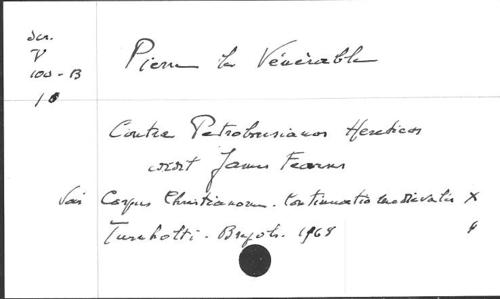 Scr.
V
100-B
10
Pierre le Vénérable
Contra Petrobrusianos Hereticos
edidit James Fearns
Voir Corpus Christianorum. Continuatio mediaevalis X
Turnholti. Brepols. 1968